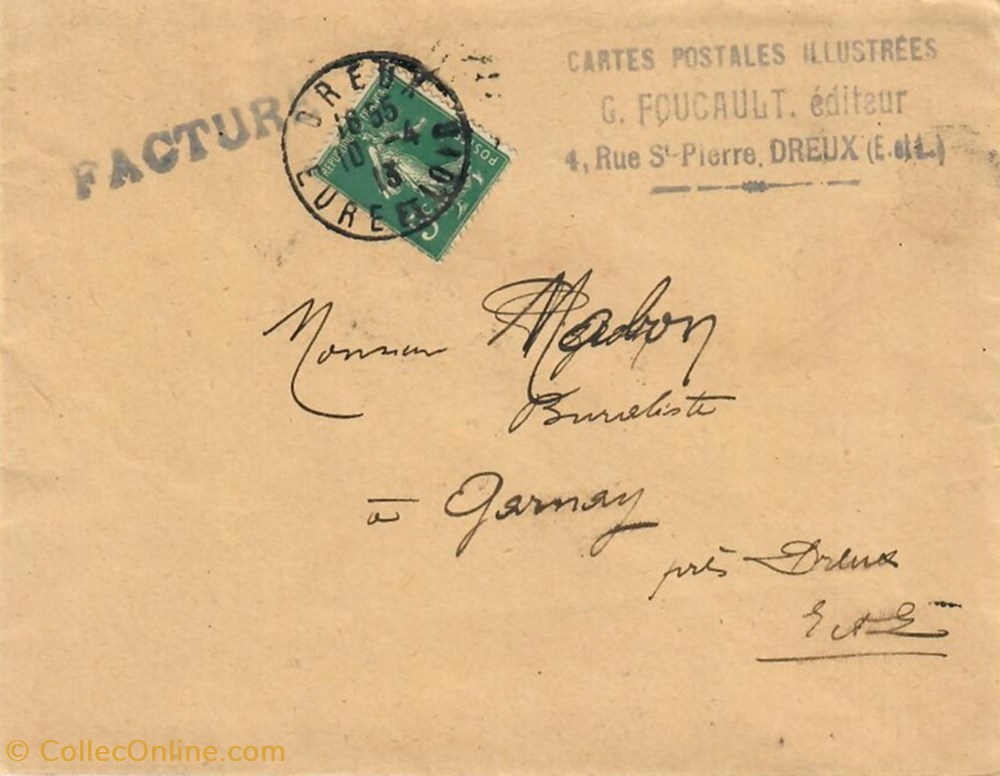 CARTES POSTALES ILLUSTRÉES
G. FOUCAULT, éditeur
4, Rue St-Pierre, DREUX (E.et L.)
FACTURE
DREUX
18 55
10 -4
13
EURE ET LOIR
POSTES
5c
Monsieur Madron
Buraliste
à Garnay
près Dreux
E & L
© CollecOnline.com